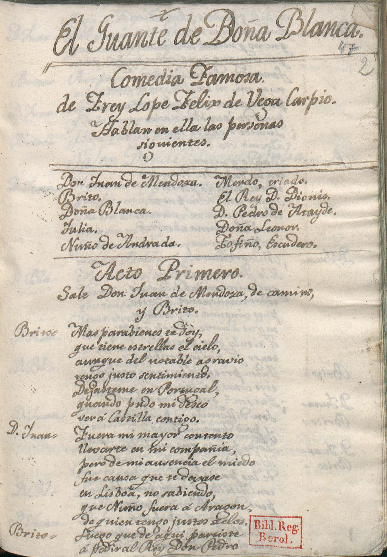 El Guante de Doña Blanca.
47
2
Comedia Famosa.
de Frey Lope Felix de Vega Carpio.
Hablan en ella las personas
siguientes.
Don Juan de Mendoza. Mendo, criado.
Brito. El Rey D. Dionis.
Doña Blanca. D. Pedro de Atayde.
Julia. Doña Leonor.
Nuño de Andrada. Tofiño, Escudero.
Acto Primero.
Sale Don Juan de Mendoza, de camino,
y Brito.
Brito= Mas parabienes te doy,
que tiene estrellas el cielo,
aunque del notable agravio
tengo justo sentimiento.
Dejasteme en Portugal,
quando pudo mi deseo
ver a Castilla contigo.
D. Juan= Fuera mi mayor contento
llevarte en mi compañia,
pero de mi ausencia el miedo
fue causa que te dejase
en Lisboa, no sabiendo,
que Nuño fuera a Aragon,
de quien tengo justos zelos.
Brito= Luego que de aqui partiste
a pedir al Rey Don Pedro
Bibl. Reg.
Berol.